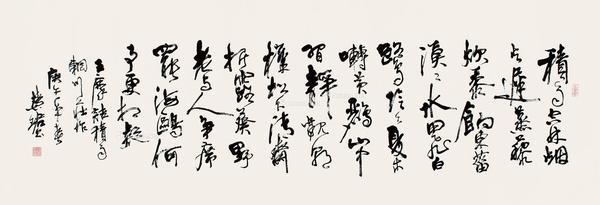 積雨空林烟
火遲蒸藜
炊黍餉東菑
漠漠水田飛白
鷺陰陰夏木
囀黃鸝山中
習靜觀朝
槿松下清齋
折露葵野
老与人争席
罷海鷗何
事更相疑
王摩詰積雨
輞川庄作
庚午年春